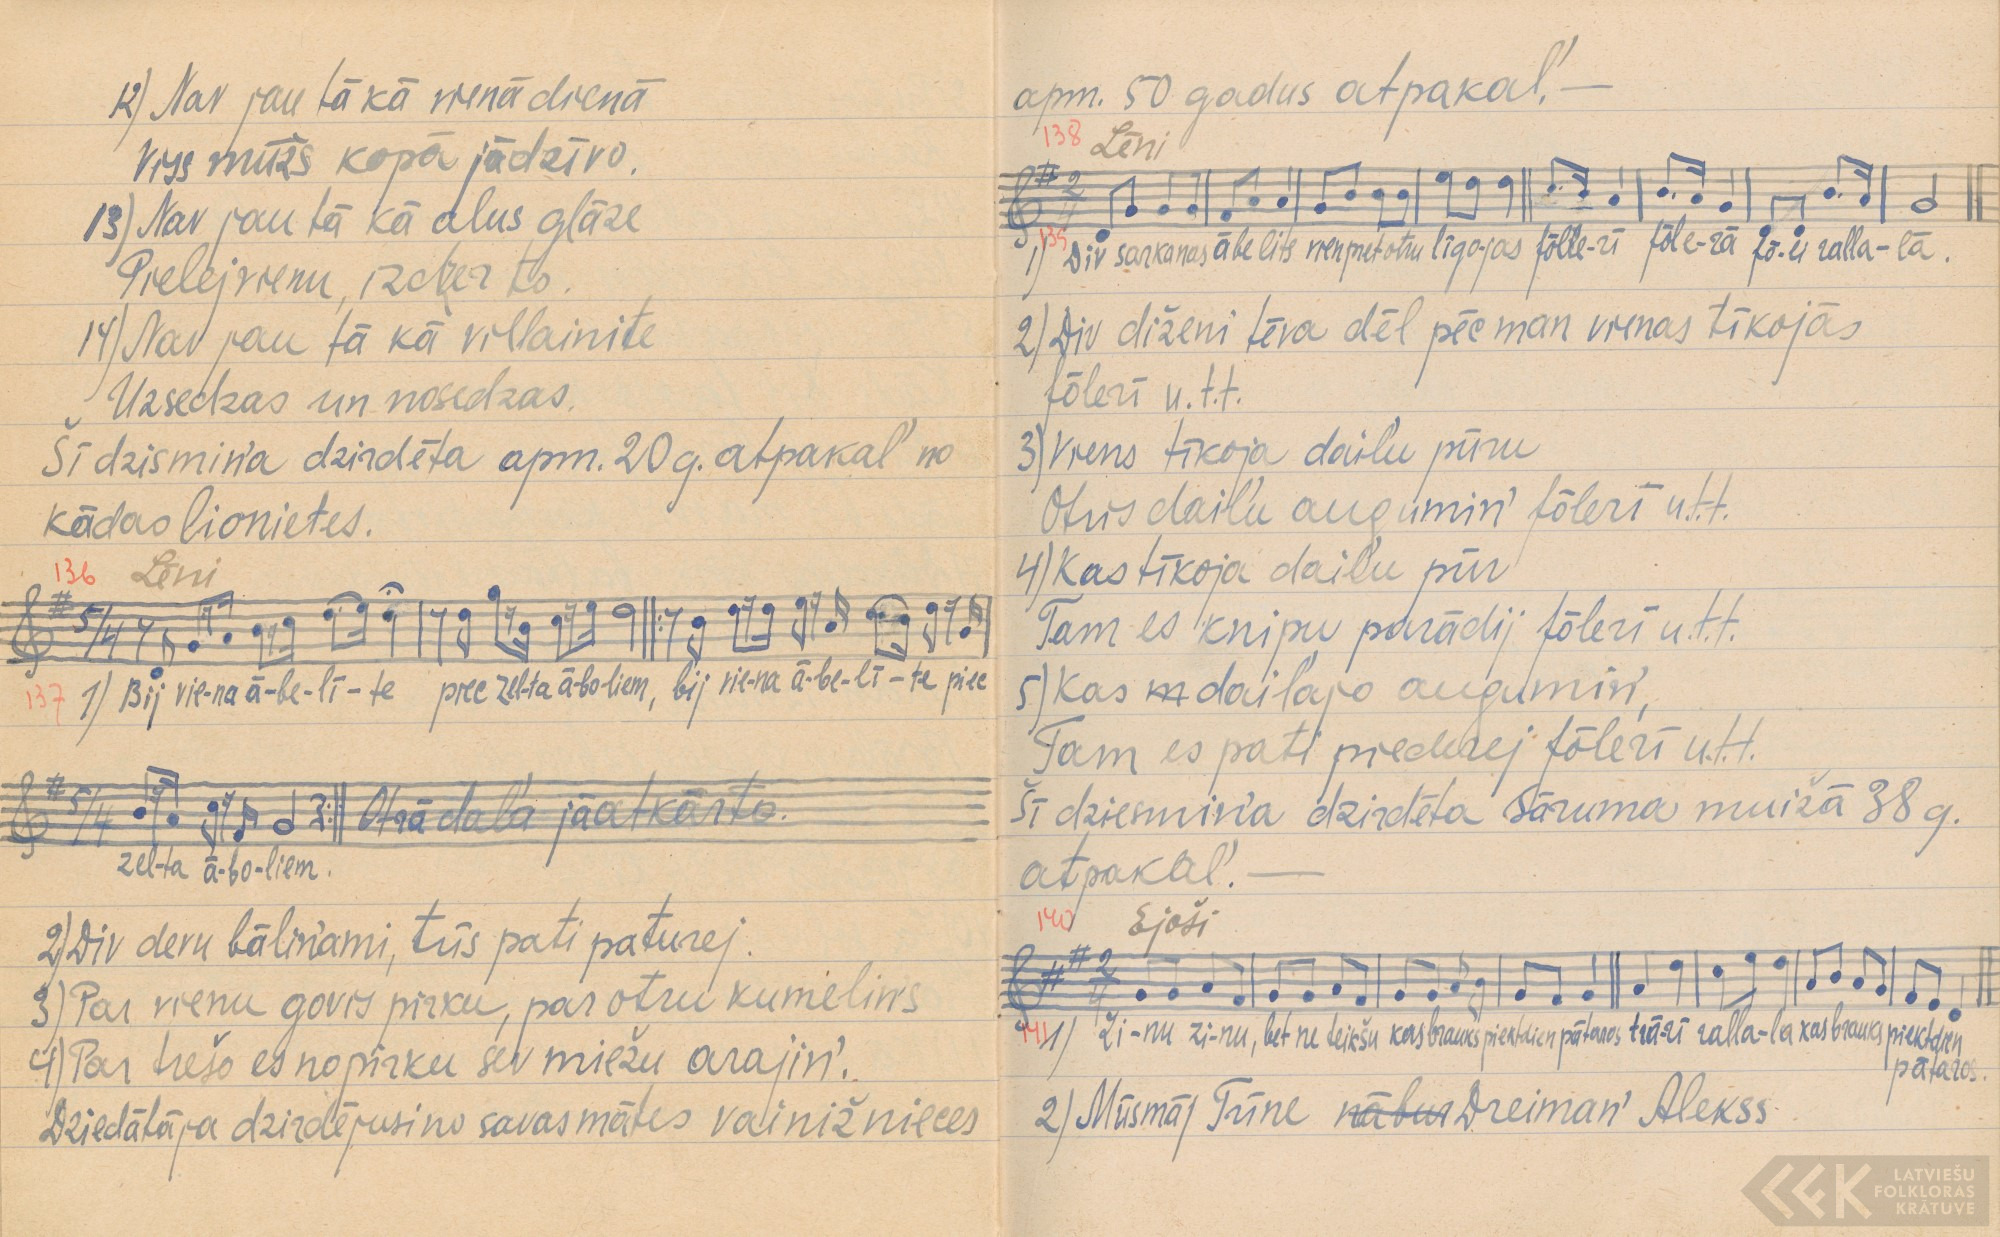 12) Nav jau tā kā vienā dienā
Viss mūžs kopā jādzīvo.
13) Nav jau tā kā alus glāze
Pielej vienu, izdzer to.
14) Nav jau tā kā villainite
Uzsedzas un nosedzas.
Šī dzismiņ'a dzirdēta apm. 20 g. atpakaļ no
kādas lionietes.
136 Lēni
5/4
137 1) Bij vie-na ā-be-lī-te piec zel-ta ā-bo-liem, bij vie-na ā-be-lī-te piec
5/4 Otrā daļa jāatkārto.
zel-ta ā-bo-liem.
2) Div devu bāliņami, trīs pati paturej.
3) Par vienu govis pirku, par otru kumeliņs
4) Par trešo es nopirku sev miežu arajiņ'.
Dziedātāja dzirdējusi no savas mātes vainižnieces
apm. 50 gadus atpakaļ. —
138 Lēni
2/4
139 1) Div sarkanas ābelits vien pret otru līgojas fōlle-rī fōle-rā fō-li ralla-lā.
2) Div diženi tēva dēl pēc man vienas tīkojās
fōlerī u.t.t.
3) Viens tīkoja daiļu pūru
Otris daiļu augumiņ' fōlerī u.t.t.
4) Kas tīkoja daiļu pūr
Tam es knipu parādij fōlerī u.t.t.
5) Kas daiļajo augumiņ',
Tam es pati piederej fōlerī u.t.t.
Šī dziesmiņ'a dzirdēta Sāruma muižā 38 g.
atpakaļ. —
140 Ejoši
2/4
141 1) Zi-nu zi-nu, bet ne teikšu kas brauks piektdien pātaros trā-rī ralla-la kas brauks piektdien
pātaros.
2) Mūsmāj Trīne nābur Dreiman' Alekss
LATVIEŠU
FOLKLORAS
KRĀTUVE